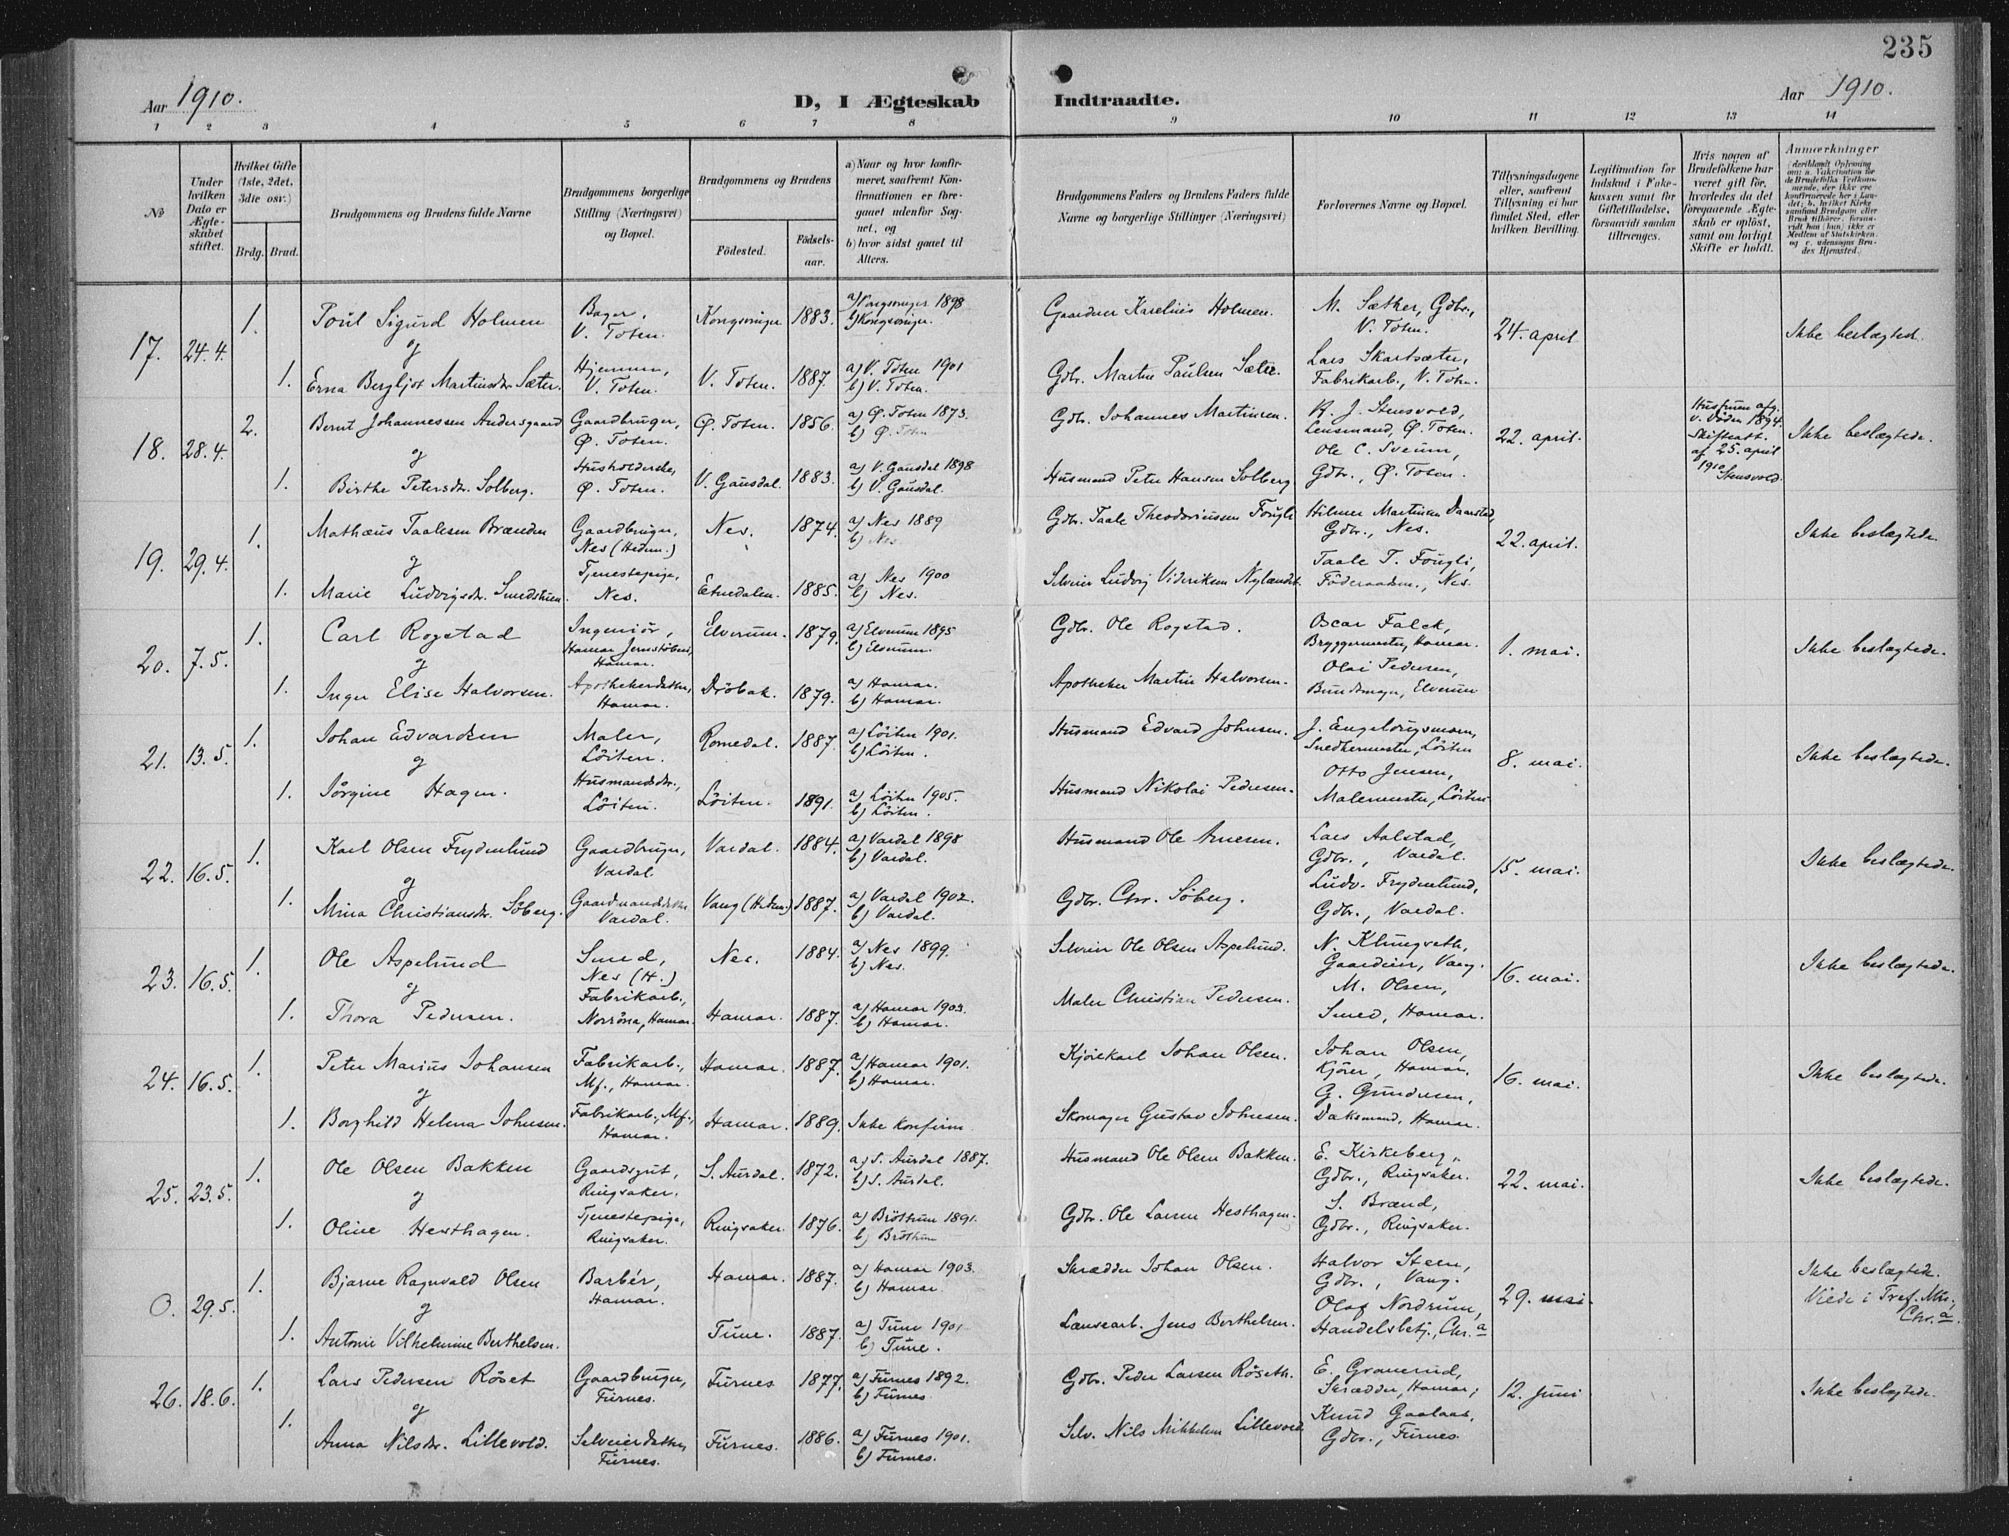 235
Aar 1910.
D, I Ægteskab Indtraadte.
Aar 1910.
1 2 3 4 5 6 7 8 9 10 11 12 13 14
No
Under hvilken Dato er Ægteskabet stiftet.
Hvilket Gifte (1ste, 2det, 3die osv.)
Brdg. Brud.
Brudgommens og Brudens fulde Navne
Brudgommens borgerlige Stilling (Næringsvei) og Bopæl.
Brudgommens og Brudens
Födested.
Födselsaar.
a) Naar og hvor konfirmeret, saafremt Konfirmationen er foregaaet udenfor Sognet, og
b) hvor sidst gaaet til Alters.
Brudgommens Faders og Brudens Faders fulde Navne og borgerlige Stillinger (Næringsvei)
Forlovernes Navne og Bopæl.
Tillysningsdagene eller, saafremt Tillysning ei har fundet Sted, efter hvilken Bevilling.
Legitimation for Indskud i Enkekassen samt for Giftetilladelse, forsaavidt saadan tiltrænges.
Hvis nogen af Brudefolkene har været gift för, hvorledes da det foregaaende Ægteskab er oplöst, samt om lovligt Skifte er holdt.
Anmærkninger
17. 24.4. 1. Poul Sigurd Holmen
Bager, V. Toten. Kongsvinger 1883. a) Kongsvinger 1898 b) Kongsvinger.
Gaardner Karelius Holmen. M. Sæther, Gdbr., V. Toten. 24. april Ikke beslægted.
og
1. Erna Bergljot Martinsdr. Sæter.
Hjemme, V. Toten. V. Toten. 1887. a) V. Toten 1901 b) V. Toten.
Gdbr. Martin Paulsen Sæter. Lars Skartsæter, Fabrikarb., V. Toten.
18. 28.4. 2. Bernt Johannessen Andersgaard
Gaardbruger, Ø. Toten. Ø. Toten. 1856. a) Ø. Toten 1873. b) Ø. Toten
Gdbr. Johannes Martinsen. K. J. Stensvold, Lensmand, Ø. Toten. 22. april.
Hustruen afg. v. Döden 1894. Skifteatt. af 25. april 1910 Stensvold. Ikke beslægtede.
og
1. Birthe Petersdr. Solberg.
Husholderske, Ø. Toten. V. Gausdal. 1883. a) V. Gausdal 1898 b) V. Gausdal.
Husmand Peter Hansen Solberg Ole C. Sveum, Gdbr., Ø. Toten.
19. 29.4. 1. Mathæus Taalesen Brænden
Gaardbruger, Nes (Hedm.) Nes. 1874. a) Nes 1889 b) Nes
Gdbr. Taale Theodoriussen Fougli Hilmer Martinsen Daarstad, Gdbr., Nes. 22. april. Ikke beslægtede.
og
1. Marie Ludvigsdr. Smedstuen.
Tjenestepige, Nes. Etnedalen. 1885. a) Nes 1900 b) Nes.
Selveier Ludvig Videriksen Nylændet. Taale T. Fougli, Föderaadsm., Nes.
20. 7.5. 1. Carl Rogstad
Ingeniör, Hamar Jernstöberi, Hamar. Elverum. 1879. a) Elverum 1895 b) Elverum.
Gdbr. Ole Rogstad. Oscar Falck, Bryggermester, Hamar. 1. mai. Ikke beslægtede.
og
1. Inger Elise Halvorsen.
Apothekerdatter, Hamar. Dröbak. 1879. a) Hamar. b) Hamar.
Apotheker Martin Halvorsen. Olai Pedersen, Bundtmager, Elverum
21. 13.5. 1. Johan Edvardsen
Maler, Löiten. Romedal. 1887. a) Löiten 1901. b) Löiten.
Husmand Edvard Johnsen. J. Engeldrugsmoen, Snedkermester, Löiten 8. mai. Ikke beslægtede.
og
1. Jörgine Hagen.
Husmandsdr., Löiten. Löiten. 1891. a) Löiten 1905. b) Löiten.
Husmand Nikolai Pedersen. Otto Jensen, Malermester, Löiten
22. 16.5. 1. Karl Olsen Frydenlund
Gaardbruger, Vardal. Vardal. 1884. a) Vardal 1898 b) Vardal.
Husmand Ole Arnesen. Lars Aalstad, Gdbr., Vardal. 15. mai. Ikke beslægtede.
og
1. Mina Christiansdr. Söberg.
Gaardmandsdatter Vardal. Vang (Hedm.) 1887. a) Vardal 1902. b) Vardal.
Gdbr. Chr. Söberg. Ludv. Frydenlund, Gdbr., Vardal.
23. 16.5. 1. Ole Aspelund
Smed, Nes (H.) Nes. 1884. a) Nes 1899. b) Nes.
Selveier Ole Olsen Aspelund. N. Klungseth, Gaardeier, Vang. 16. mai. Ikke beslægtede.
og
1. Thora Pedersen.
Fabrikarb., Norröna, Hamar. Hamar. 1887. a) Hamar 1903. b) Hamar.
Maler Christian Pedersen. M. Olsen, Smed, Hamar.
24. 16.5. 1. Peter Marius Johansen
Fabrikarb., Mf., Hamar. Hamar. 1887. a) Hamar 1901. b) Hamar.
Kjörekarl Johan Olsen. Johan Olsen, Kjörer, Hamar. 16. mai. Ikke beslægtede.
og
1. Borghild Helena Johnsen.
Fabrikarb., Mf., Hamar. Hamar. 1889. Ikke konfirm.
Skomager Gustav Johnsen. G. Gundersen, Daksmand, Hamar.
25. 23.5. 1. Ole Olsen Bakken
Gaardsgut, Ringsaker. S. Aurdal. 1872. a) S. Aurdal 1887. b) S. Aurdal.
Husmand Ole Olsen Bakken. E. Kirkeberg, Gdbr., Ringsaker. 22. mai. Ikke beslægtede.
og
1. Oline Hesthagen.
Tjenestepige, Ringsaker. Ringsaker. 1876. a) Bröttum 1891. b) Bröttum
Gdbr. Ole Larsen Hesthagen. S. Brænd, Gdbr., Ringsaker.
0. 29.5. 1. Bjarne Ragnvald Olsen
Barbér, Hamar. Hamar. 1887. a) Hamar 1903. b) Hamar.
Skrædder Johan Olsen. Halvor Steen, Gdbr., Vang. 29. mai. Ikke beslægtede. Viede i Tref. Mk., Chr.a.
og
1. Antonie Vilhelmine Berthelsen.
Tune. 1887. a) Tune 1901 b) Tune.
Lænsearb. Jens Berthelsen. Olaf Nordrum, Handelsbetj., Chr.a
26. 18.6. 1. Lars Pedersen Röset
Gaardbruger, Furnes. Furnes 1877. a) Furnes 1892. b) Furnes
Gdbr. Peder Larsen Röseth. E. Granerud, Skrædder, Hamar; 12. juni Ikke beslægtede.
og
1. Anna Nilsdr. Lillevold.
Selveierdatter, Furnes. Furnes. 1886. a) Furnes 1901. b) Furnes.
Selv. Nils Mikkelsen Lillevold Knud Gaalaas, Gdbr., Furnes.